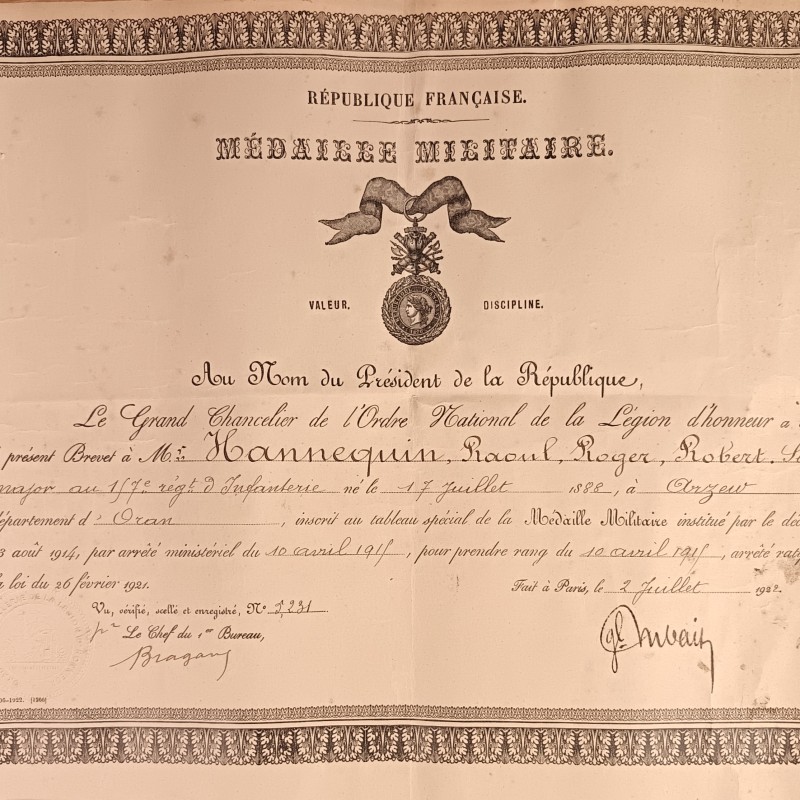 RÉPUBLIQUE FRANÇAISE.
MÉDAILLE MILITAIRE.
VALEUR. DISCIPLINE.
Au Nom du Président de la République,
Le Grand Chancelier de l'Ordre National de la Légion d'honneur a
présent Brevet à Mr. Hannequin, Raoul, Roger, Robert.
major au 157e régt. d'Infanterie né le 17 Juillet 1888, à Arzew
département d' Oran, inscrit au tableau spécial de la Médaille Militaire institué par le déc
3 août 1914, par arrêté ministériel du 10 avril 1915, pour prendre rang du 10 avril 1915, arrêté rat
la loi du 26 février 1921.
Fait à Paris, le 2 Juillet 1922.
Vu, vérifié, scellé et enregistré, No
pr Le Chef du 1er Bureau,